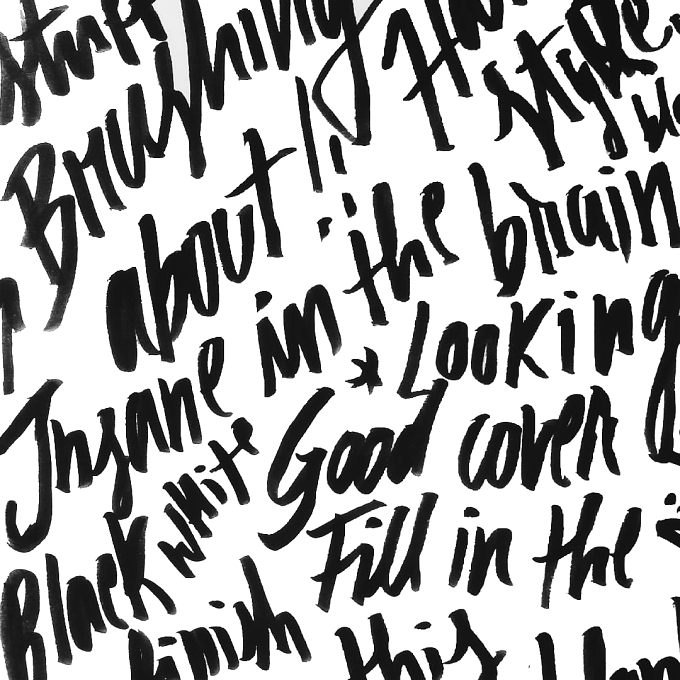 stuff
Brushing
Style
about
in the brain
Insane
Looking
white
Good cover
Black
Fill in the
finish this